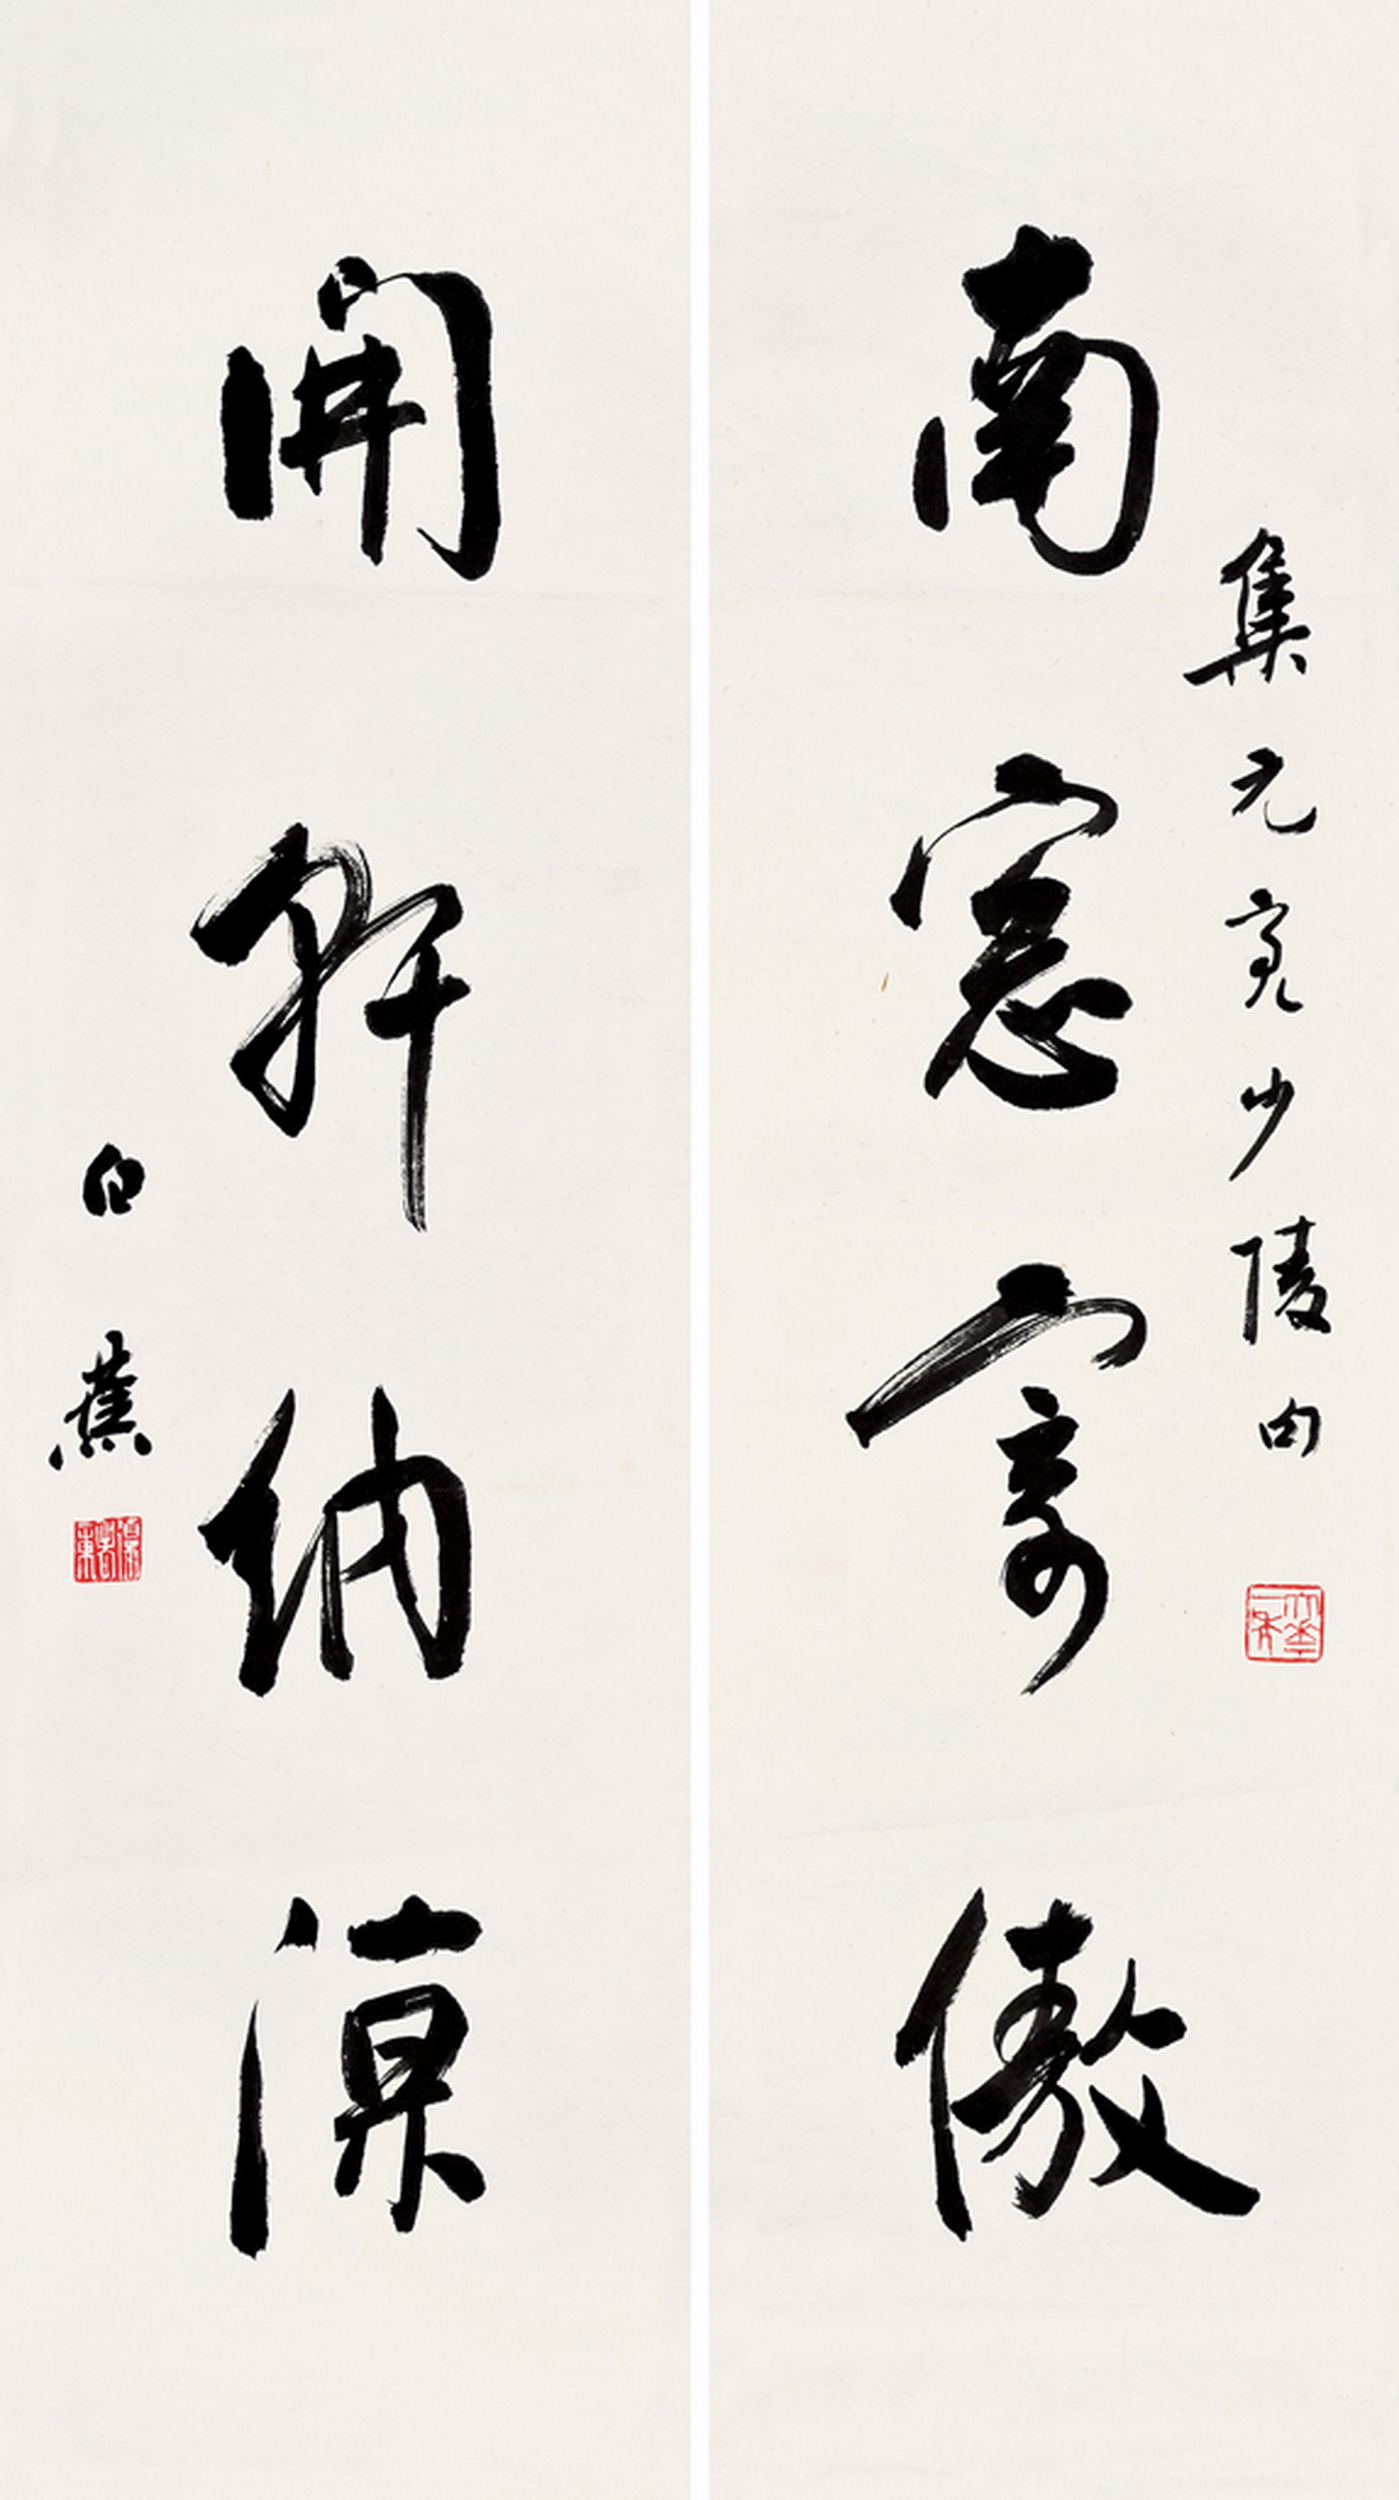 集元亮少陵句
南窻寄傲
開軒納涼
白蕉